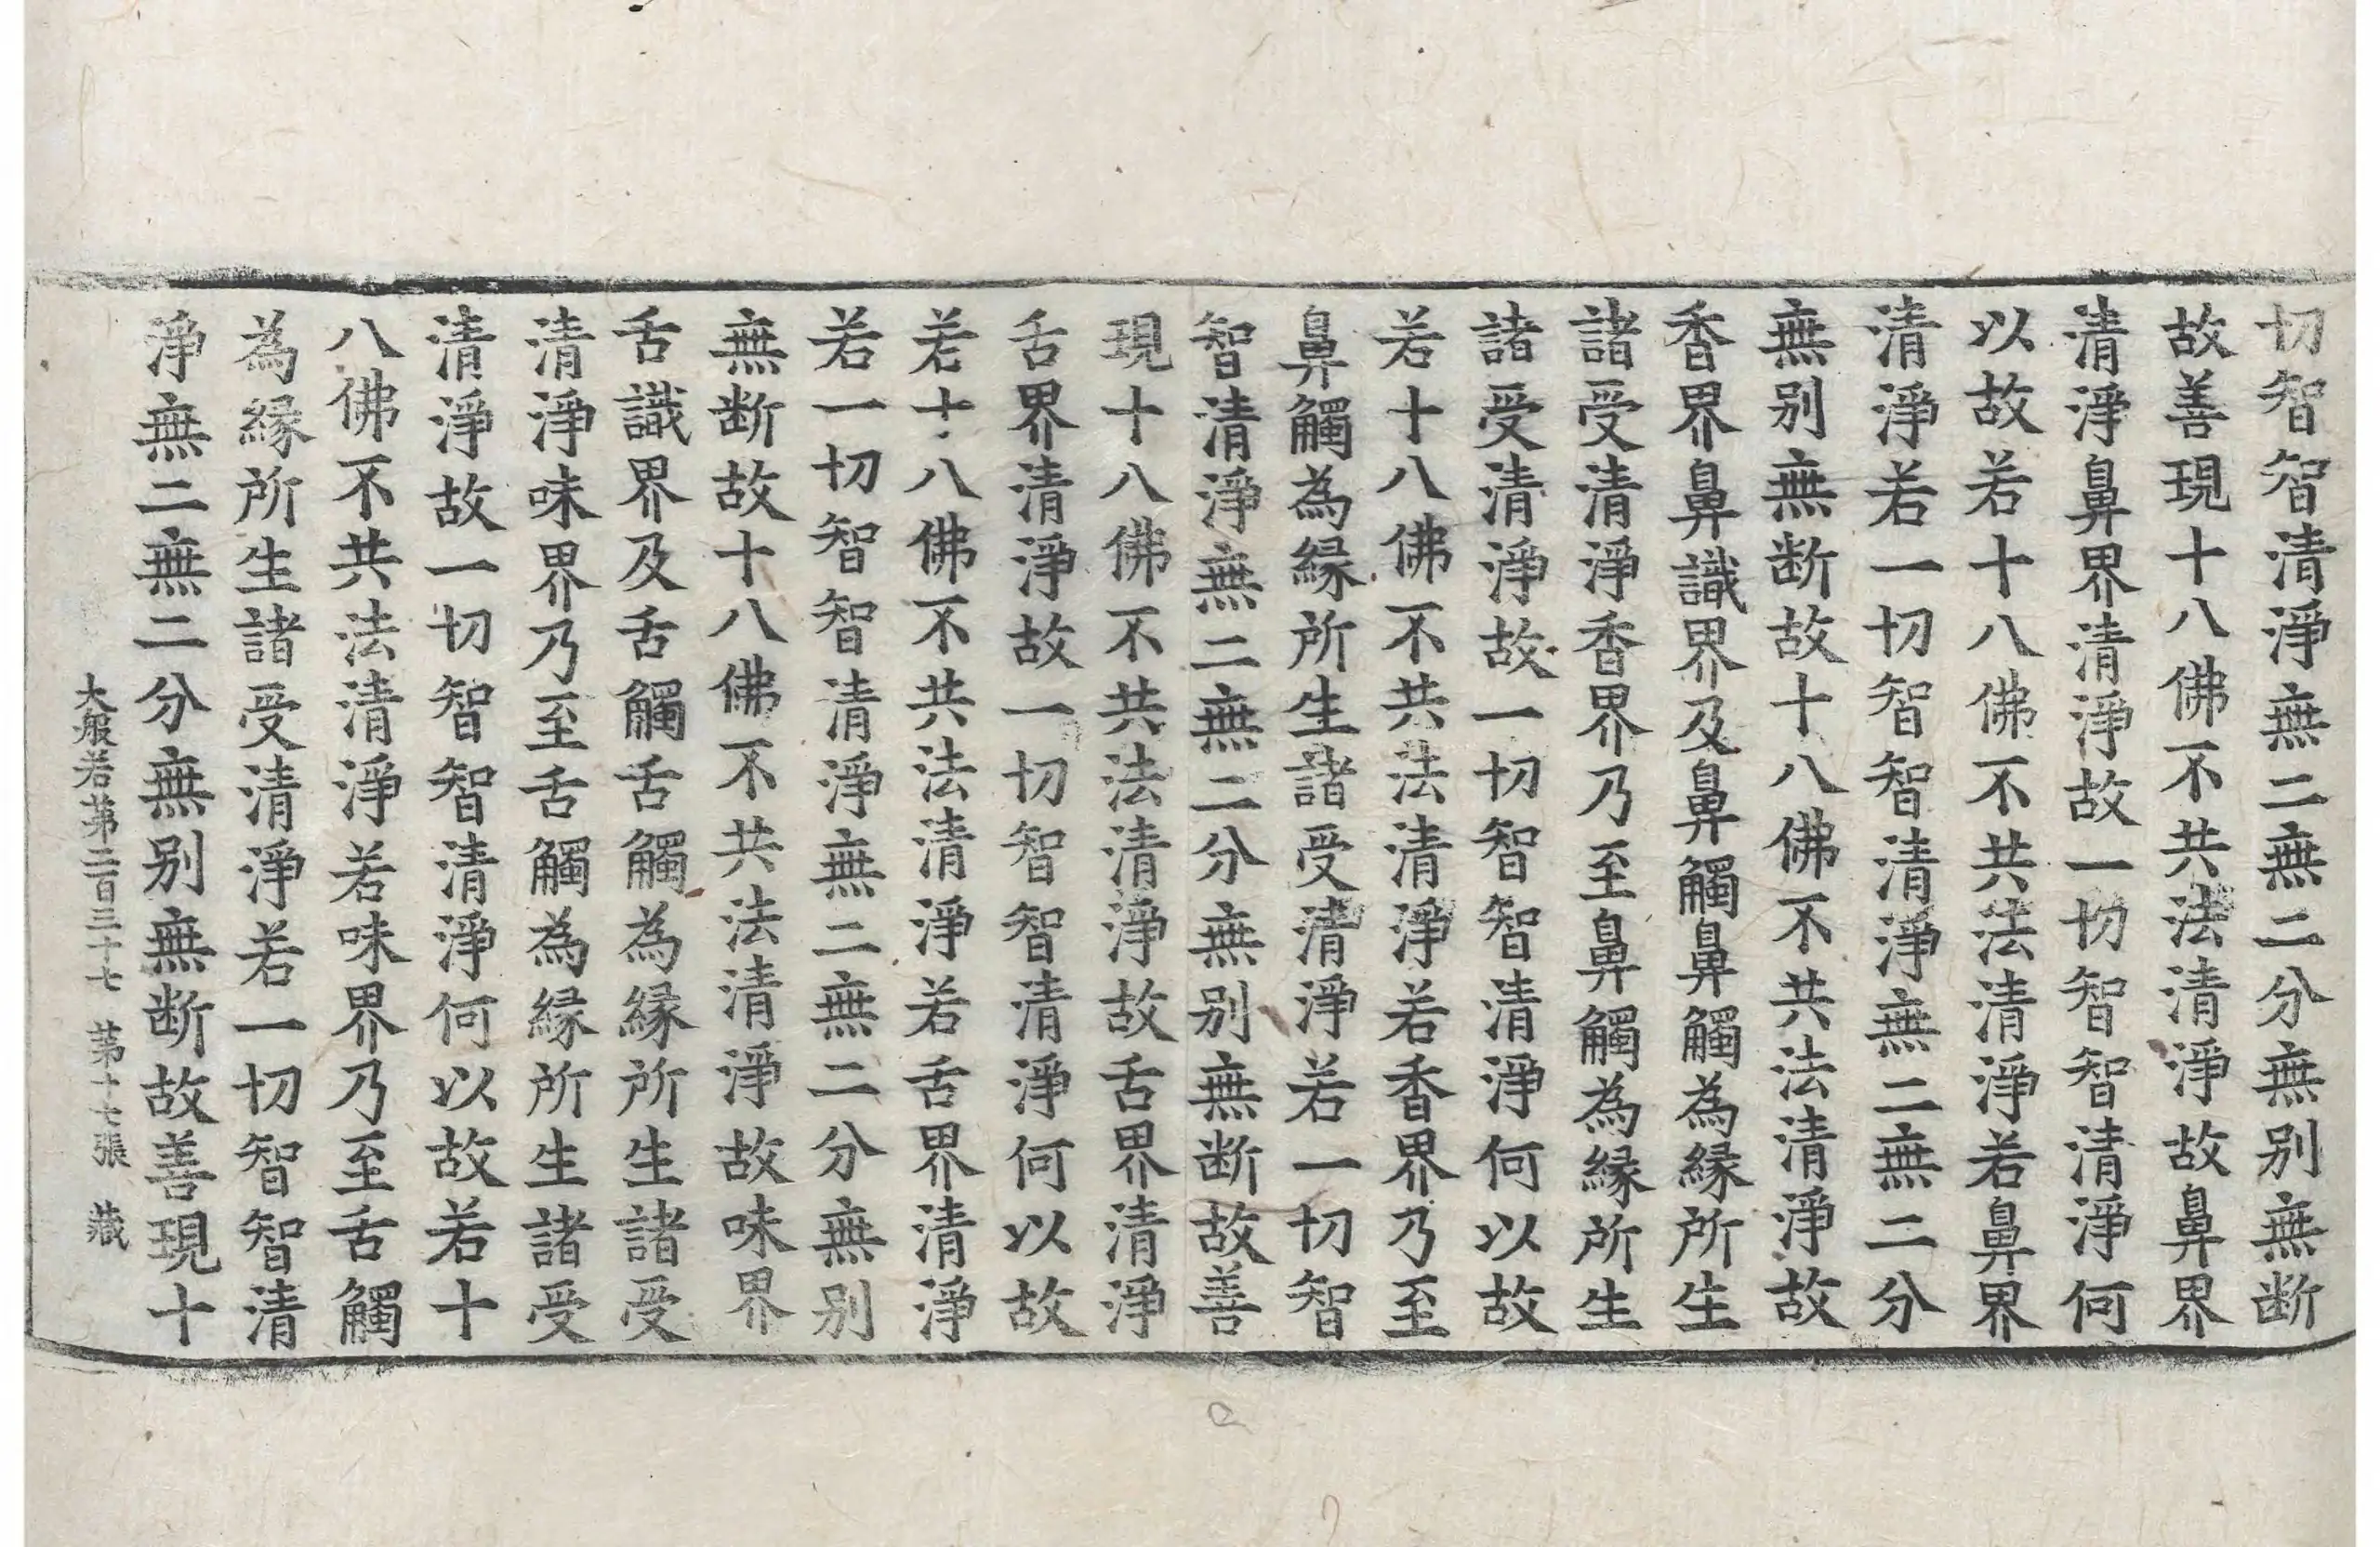 切智智清淨無二無二分無別無断
故善現十八佛不共法清淨故鼻界
清淨鼻界清淨故一切智智清淨何
以故若十八佛不共法清淨若鼻界
清淨若一切智智清淨無二無二分
無別無断故十八佛不共法清淨故
香界鼻識界及鼻觸鼻觸為縁所生
諸受清淨香界乃至鼻觸為縁所生
諸受清淨故一切智智清淨何以故
若十八佛不共法清淨若香界乃至
鼻觸為縁所生諸受清淨若一切智
智清淨無二無二分無別無断故善
現十八佛不共法清淨故舌界清淨
舌界清淨故一切智智清淨何以故
若十八佛不共法清淨若舌界清淨
若一切智智清淨無二無二分無別
無断故十八佛不共法清淨故味界
舌識界及舌觸舌觸為縁所生諸受
清淨味界乃至舌觸為縁所生諸受
清淨故一切智智清淨何以故若十
八佛不共法清淨若味界乃至舌觸
為縁所生諸受清淨若一切智智清
淨無二無二分無別無断故善現十
大般若苐二百三十七　苐十七張　藏